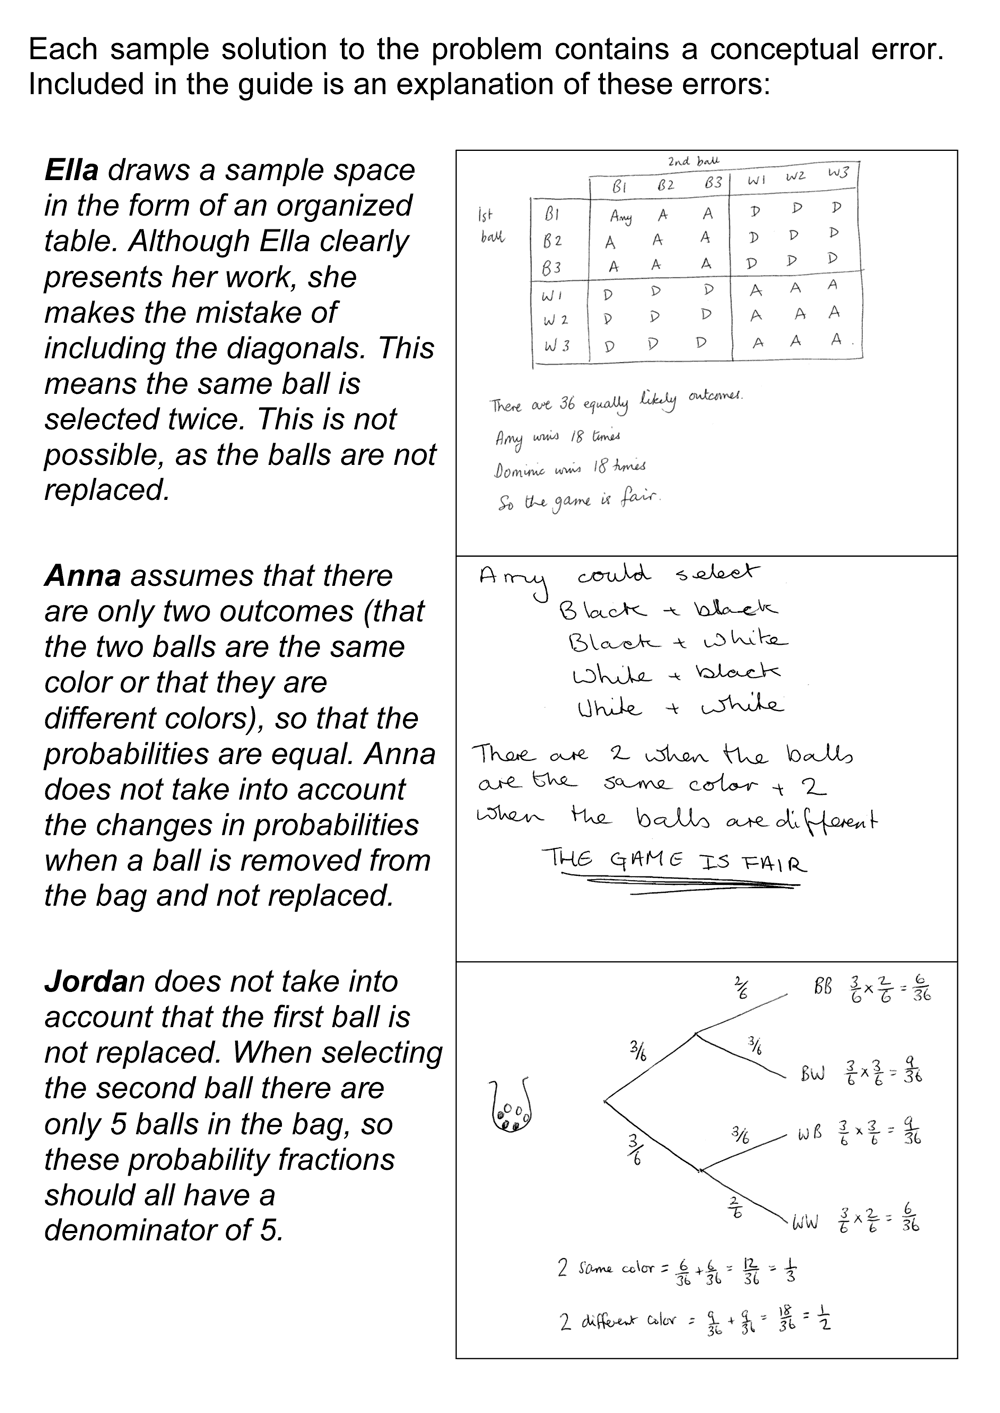 Each sample solution to the problem contains a conceptual error.
Included in the guide is an explanation of these errors:
Ella draws a sample space
in the form of an organized
table. Although Ella clearly
presents her work, she
makes the mistake of
including the diagonals. This
means the same ball is
selected twice. This is not
possible, as the balls are not
replaced.
2nd ball
B1 B2 B3 W1 W2 W3
1st ball
B1 Amy A A D D D
B2 A A A D D D
B3 A A A D D D
W1 D D D A A A
W2 D D D A A A
W3 D D D A A A.
There are 36 equally likely outcomes.
Amy wins 18 times
Dominic wins 18 times
So the game is fair.
Anna assumes that there
are only two outcomes (that
the two balls are the same
color or that they are
different colors), so that the
probabilities are equal. Anna
does not take into account
the changes in probabilities
when a ball is removed from
the bag and not replaced.
Amy could select
Black + black
Black + white
White + black
White + white
There are 2 when the balls
are the same color + 2
when the balls are different
THE GAME IS FAIR
Jordan does not take into
account that the first ball is
not replaced. When selecting
the second ball there are
only 5 balls in the bag, so
these probability fractions
should all have a
denominator of 5.
2/6 BB 3/6 × 2/6 = 6/36
3/6 3/6
BW 3/6 × 3/6 = 9/36
3/6 3/6 WB 3/6 × 3/6 = 9/36
2/6 WW 3/6 × 2/6 = 6/36
2 same color = 6/36 + 6/36 = 12/36 = 1/3
2 different color = 9/36 + 9/36 = 18/36 = 1/2